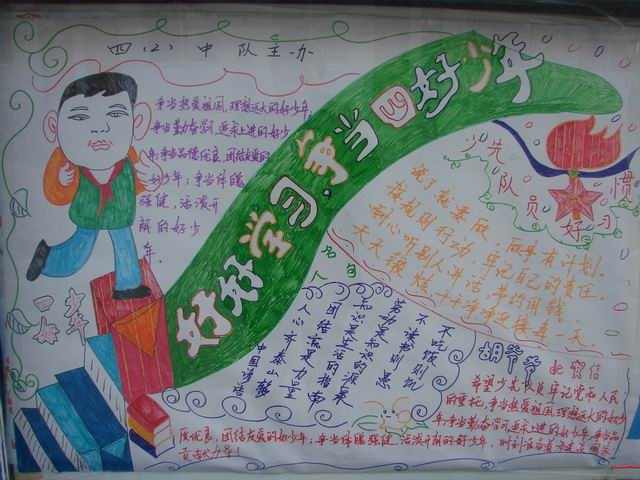 四（2）中队主办
好好学习 争当四好少年
争当热爱祖国，理想远大的好少年；
争当勤奋学习，追求上进的好少
年；争当品德优良，团结友爱的
好少年；争当体魄
强健，活泼开
朗的好少
年。
四好少年
少先
队员好习
惯
说了就要做，做事有计划。
按规则行动，牢记自己的责任。
耐心听别人讲话，节约用钱
天天锻炼，干干净净迎接每一天。
名句
不吃饭则饥
不读书则愚
劳动是知识的源泉
知识是生活的指南
团结就是力量
人心齐，泰山移
中国谚语
胡爷爷de贺信
希望少先队员牢记党和人民
的重托，争当热爱祖国，理想远大的好少
年，争当勤奋学习，追求上进的好少年，争当品
德优良，团结友爱的好少年，争当体魄强健，活泼开朗的好少年，时刻准备着
贡献力量！